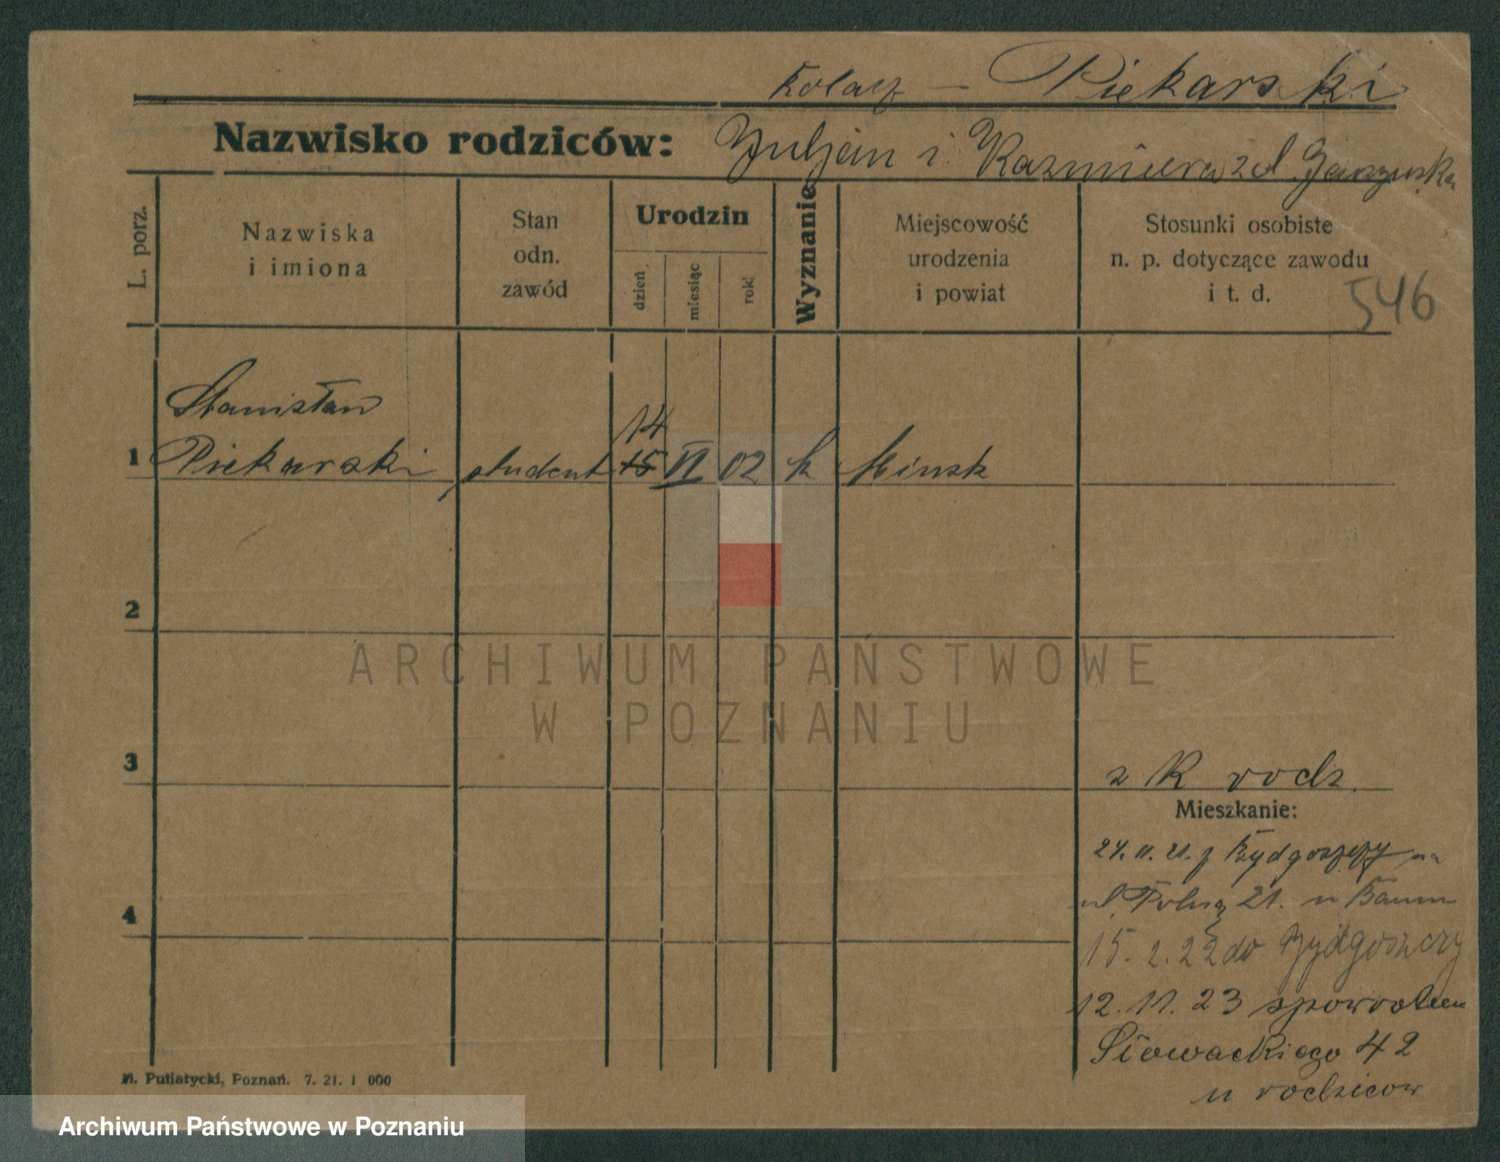 Kolacz — Piekarski
Nazwisko rodziców: Juljan i Kazmiera zd.
L. porz.
Nazwiska
i imiona
Stan
odn.
zawód
Urodzin
dzień
miesiąc
rok
Wyznanie
Miejscowość
urodzenia
i powiat
Stosunki osobiste
n. p. dotyczące zawodu
i t. d.
546
Stanisław
14
1 Piekarski student 15 VI 02 k Minsk
2
ARCHIWUM PAŃSTWOWE
W POZNANIU
3
z K rodz.
Mieszkanie:
24. 11. 21. z Bydgoszczy na
ul. Polną 21. u Baum
4
15. 2. 22 do Bydgoszczy
12. 11. 23 spowrotem
Słowackiego 42
u rodziców
M. Putiatycki, Poznań. 7. 21. 1 000
Archiwum Państwowe w Poznaniu